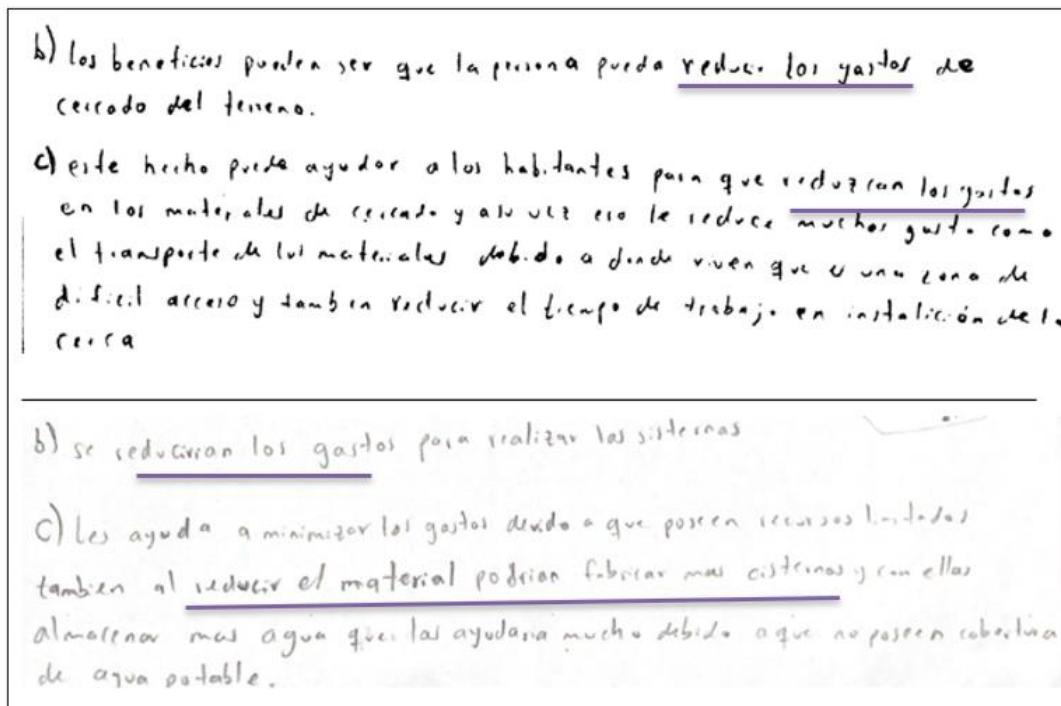 b) los beneficios pueden ser que la persona pueda reducir los gastos de
cercado del terreno.
c) este hecho puede ayudar a los habitantes para que reduzcan los gastos
en los materiales de cercado y a su vez eso le reduce muchos gasto como
el transporte de los materiales debido a donde viven que es una zona de
dificil acceso y tambien reducir el tiempo de trabajo en instalición de la
cerca
b) se reducirian los gastos para realizar las sisternas
C) Les ayuda a minimizar los gastos devido a que poseen recursos limitados
tambien al reducir el material podrian fabricar mas cisternas y con ellas
almacenar mas agua que las ayudaria mucho debido a que no poseen cobertura
de agua potable.